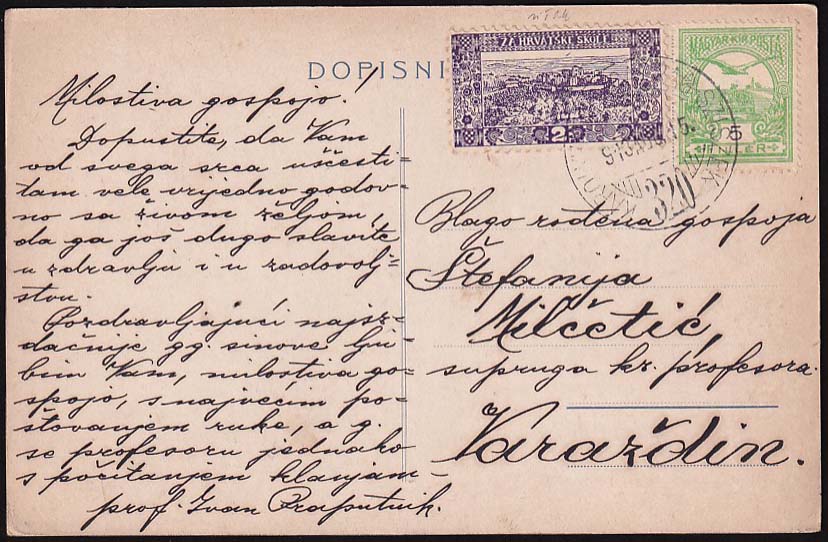 DOPISNI
ZA HRVATSKE ŠKOLE
2
MAGYAR KIR. POSTA
5
320
Milostiva gospojo!
Dopustite, da Vam
od svega srca ušćesti-
tam vele vrijedno godov-
no sa živom željom,
da ga još dugo slavite
u zdravlju i u zadovolj-
stvu.
Pozdravljajući najsr-
dačnije gg. sinove lju-
bim Vam, milostiva go-
spojo, s najvećim po-
štovanjem ruke, a g.
se profesoru jednako
s počitanjem klanjam –
prof. Ivan Praputnik.
Blago rođena gospoja
Štefanija
Milčetić,
supruga kr. profesora.
Varaždin.